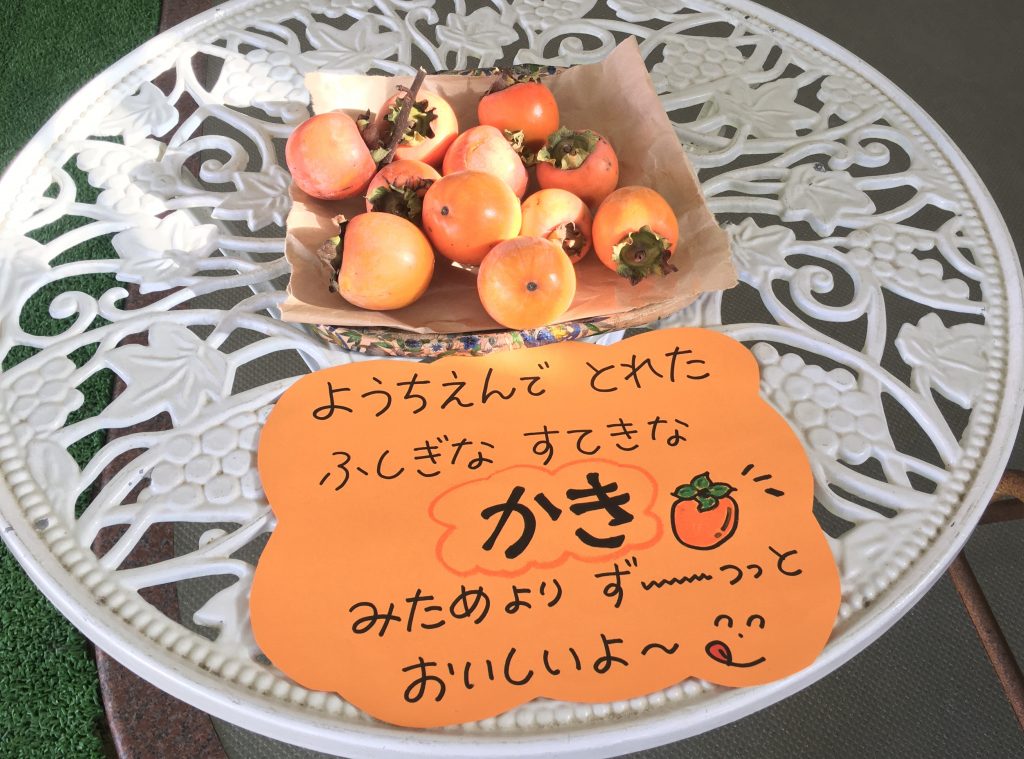 ようちえんで とれた
ふしぎな すてきな
かき
みためより ず〰〰っっと
おいしいよ〜